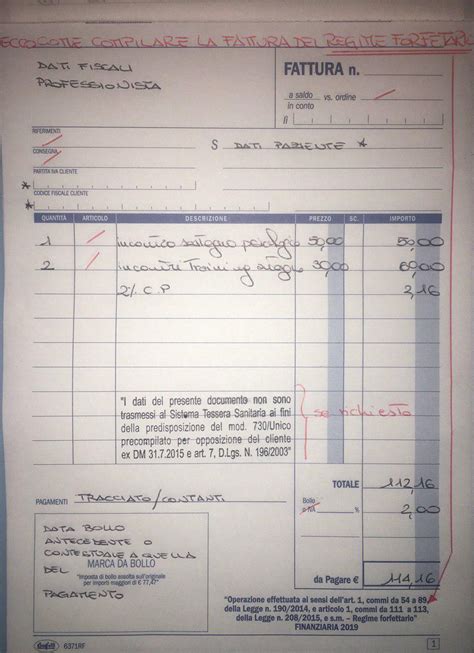 ECCO COME COMPILARE LA FATTURA DEL REGIME FORFETARIO
DATI FISCALI
PROFESSIONISTA
FATTURA n.
a saldo vs. ordine
in conto
lì
RIFERIMENTI
CONSEGNA
S DATI PAZIENTE *
PARTITA IVA CLIENTE
*
CODICE FISCALE CLIENTE
*
QUANTITÀ ARTICOLO DESCRIZIONE PREZZO SC. IMPORTO
1 incontro sostegno psicologico 50,00 50,00
2 incontri Training 30,00 60,00
2% C.P 2,16
"I dati del presente documento non sono
trasmessi al Sistema Tessera Sanitaria ai fini
della predisposizione del mod. 730/Unico
precompilato per opposizione del cliente
ex DM 31.7.2015 e art. 7, D.Lgs. N. 196/2003"
se richiesto
TOTALE 112,16
PAGAMENTI TRACCIATO/CONTANTI
Bollo
o IVA % 2,00
DATA BOLLO
ANTECEDENTE O
CONTESTUALE A QUELLA
DEL MARCA DA BOLLO
"Imposta di bollo assolta sull'originale
per importi maggiori di € 77,47"
PAGAMENTO
da Pagare € 114,16
"Operazione effettuata ai sensi dell'art. 1, commi da 54 a 89,
della Legge n. 190/2014, e articolo 1, commi da 111 a 113,
della Legge n. 208/2015, e s.m. – Regime forfettario"
FINANZIARIA 2019
6371RF
1